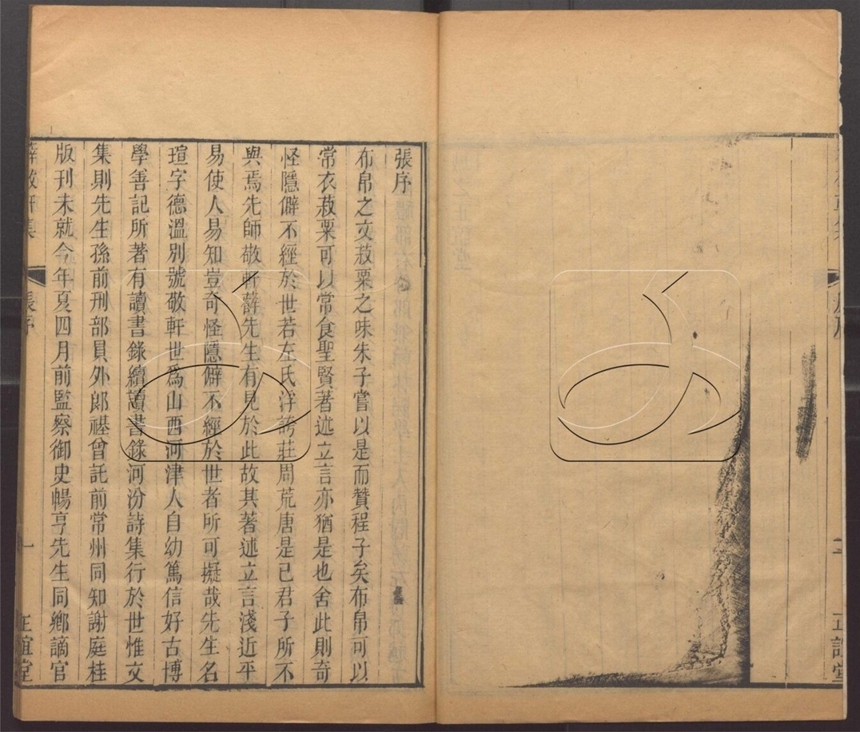 張序
布帛之文菽粟之味朱子嘗以是而贊程子矣布帛可以
常衣菽粟可以常食聖賢著述立言亦猶是也舍此則奇
怪隱僻不經於世若左氏浮誇莊周荒唐是已君子所不
與焉先師敬軒薛先生有見於此故其著述立言淺近平
易使人易知豈奇怪隱僻不經於世者所可擬哉先生名
瑄字德溫別號敬軒世為山西河津人自幼篤信好古博
學善記所著有讀書錄續讀書錄河汾詩集行於世惟文
集則先生孫前刑部員外郎禥曾託前常州同知謝庭桂
版刊未就今年夏四月前監察御史暢亨先生同鄉謫官
薛敬軒集
張序
一
正誼堂
二
正誼堂